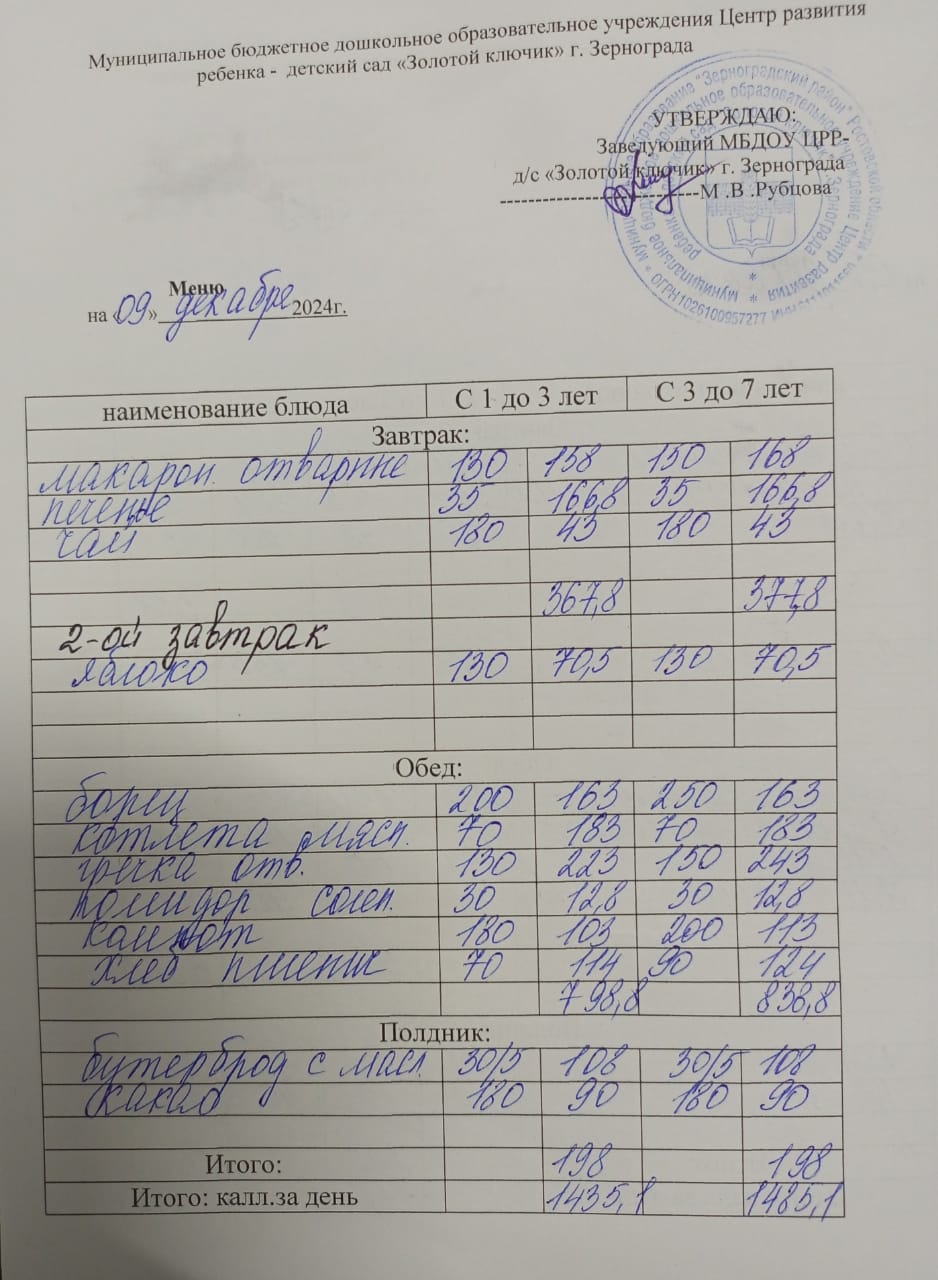 Муниципальное бюджетное дошкольное образовательное учреждения Центр развития
ребенка - детский сад «Золотой ключик» г. Зернограда
УТВЕРЖДАЮ:
Заведующий МБДОУ ЦРР-
д/с «Золотой ключик» г. Зернограда
----------------------------М .В .Рубцова
Меню
на «09» декабре 2024г.
наименование блюда С 1 до 3 лет С 3 до 7 лет
Завтрак:
макарон. отварные 130 158 150 168
печенье 35 166,8 35 166,8
чай 180 43 180 43
367,8 377,8
2-ой завтрак
яблоко 130 70,5 130 70,5
Обед:
борщ 200 163 250 163
котлета мясн. 70 183 70 183
гречка отв. 130 223 150 243
помидор солен. 30 12,8 30 12,8
компот 180 103 200 113
хлеб пшенич 70 114 90 124
798,8 838,8
Полдник:
бутерброд с масл. 30/5 108 30/5 108
какао 180 90 180 90
Итого: 198 198
Итого: калл.за день 1435,1 1485,1